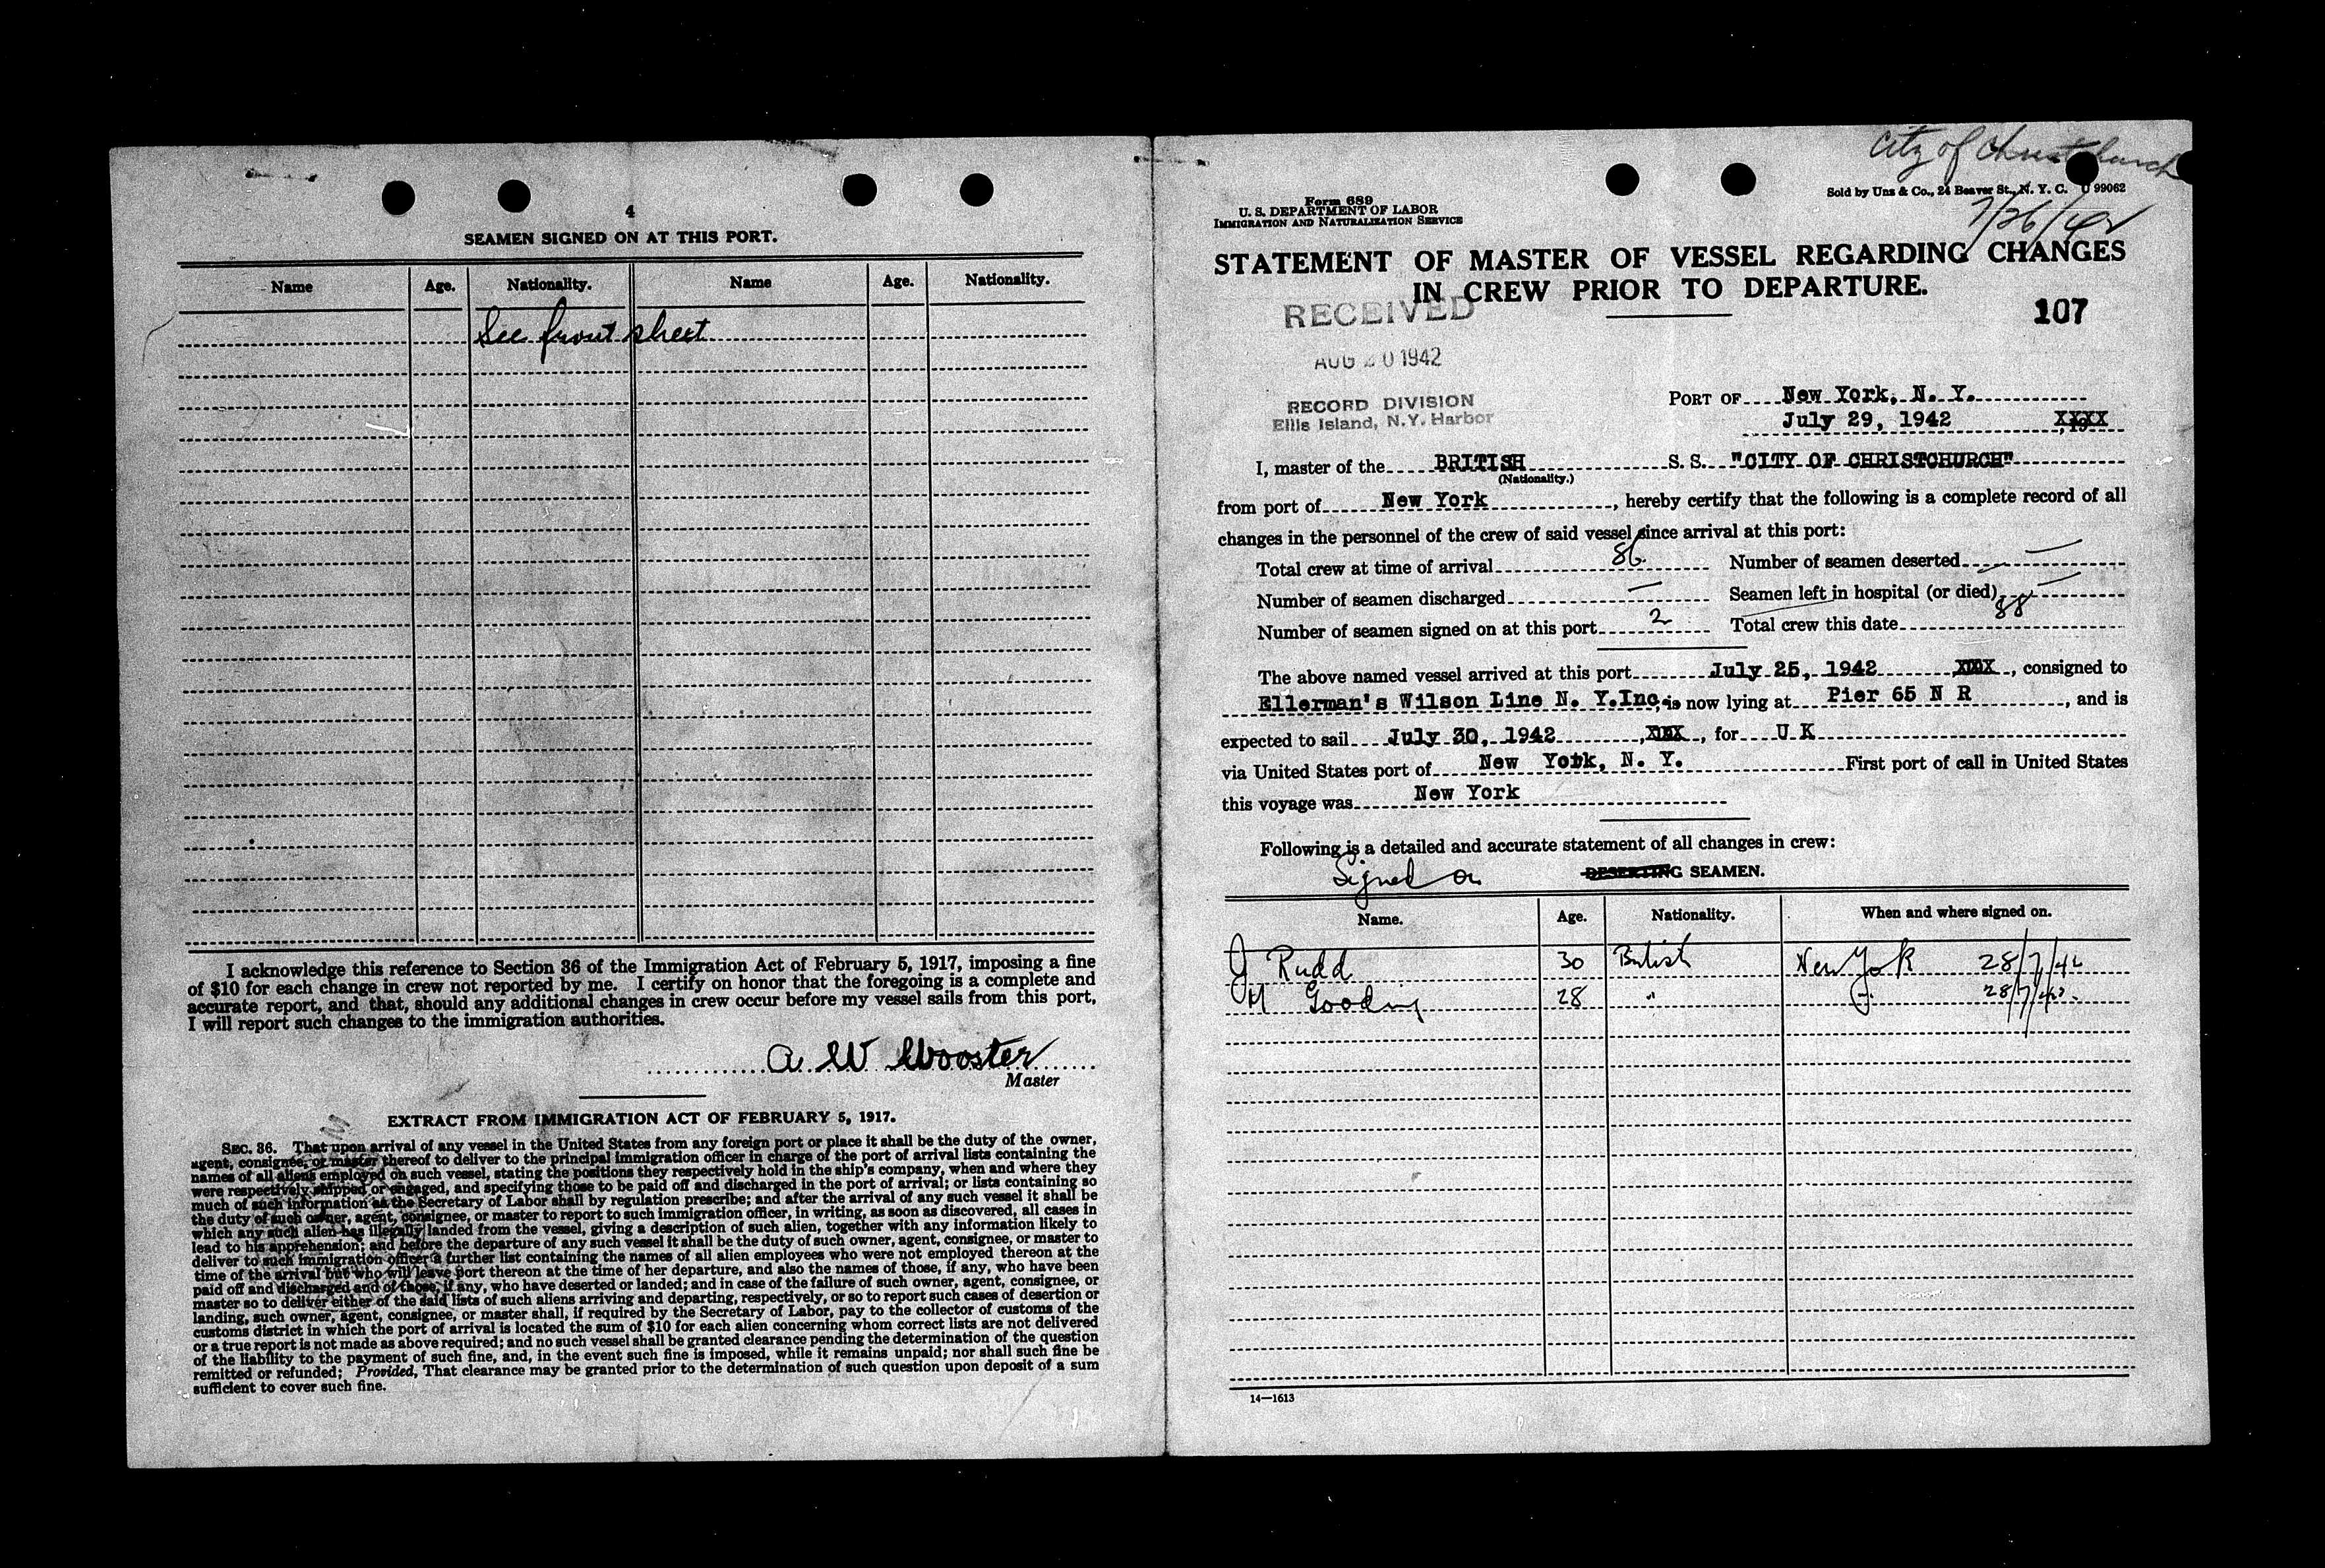 4
SEAMEN SIGNED ON AT THIS PORT.
Name Age. Nationality. Name Age. Nationality.
See front sheet
I acknowledge this reference to Section 36 of the Immigration Act of February 5, 1917, imposing a fine
of $10 for each change in crew not reported by me. I certify on honor that the foregoing is a complete and
accurate report, and that, should any additional changes in crew occur before my vessel sails from this port,
I will report such changes to the immigration authorities.
A W Wooster
Master
EXTRACT FROM IMMIGRATION ACT OF FEBRUARY 5, 1917.
SEC. 36. That upon arrival of any vessel in the United States from any foreign port or place it shall be the duty of the owner,
agent, consignee, or master thereof to deliver to the principal immigration officer in charge of the port of arrival lists containing the
names of all aliens employed on such vessel, stating the positions they respectively hold in the ship's company, when and where they
were respectively shipped or engaged, and specifying those to be paid off and discharged in the port of arrival; or lists containing so
much of such information as the Secretary of Labor shall by regulation prescribe; and after the arrival of any such vessel it shall be
the duty of such owner, agent, consignee, or master to report to such immigration officer, in writing, as soon as discovered, all cases in
which any such alien has illegally landed from the vessel, giving a description of such alien, together with any information likely to
lead to his apprehension; and before the departure of any such vessel it shall be the duty of such owner, agent, consignee, or master to
deliver to such immigration officer a further list containing the names of all alien employees who were not employed thereon at the
time of the arrival but who will leave port thereon at the time of her departure, and also the names of those, if any, who have been
paid off and discharged and of those, if any, who have deserted or landed; and in case of the failure of such owner, agent, consignee, or
master so to deliver either of the said lists of such aliens arriving and departing, respectively, or so to report such cases of desertion or
landing, such owner, agent, consignee, or master shall, if required by the Secretary of Labor, pay to the collector of customs of the
customs district in which the port of arrival is located the sum of $10 for each alien concerning whom correct lists are not delivered
or a true report is not made as above required; and no such vessel shall be granted clearance pending the determination of the question
of the liability to the payment of such fine, and, in the event such fine is imposed, while it remains unpaid; nor shall such fine be
remitted or refunded; Provided, That clearance may be granted prior to the determination of such question upon deposit of a sum
sufficient to cover such fine.
City of Christchurch
Form 689
U. S. DEPARTMENT OF LABOR
IMMIGRATION AND NATURALIZATION SERVICE
Sold by Unz & Co., 24 Beaver St., N. Y. C. U 99062
7/26/42
STATEMENT OF MASTER OF VESSEL REGARDING CHANGES
IN CREW PRIOR TO DEPARTURE.
107
RECEIVED
AUG 20 1942
RECORD DIVISION
Ellis Island, N.Y. Harbor
PORT OF New York, N. Y.
July 29, 1942 XXXX
I, master of the BRITISH S. S. "CITY OF CHRISTCHURCH"
(Nationality.)
from port of New York, hereby certify that the following is a complete record of all
changes in the personnel of the crew of said vessel since arrival at this port:
Total crew at time of arrival 86 Number of seamen deserted —
Number of seamen discharged — Seamen left in hospital (or died) —
Number of seamen signed on at this port 2 Total crew this date 88
The above named vessel arrived at this port July 25, 1942 XXX, consigned to
Ellerman's Wilson Line N. Y.Inc. is now lying at Pier 65 N R, and is
expected to sail July 30, 1942, XXX, for U K
via United States port of New York, N. Y. First port of call in United States
this voyage was New York
Following is a detailed and accurate statement of all changes in crew:
Signed on DESERTING SEAMEN.
Name. Age. Nationality. When and where signed on.
J Rudd 30 British New York 28/7/42
H Gooding 28 " 28/7/42.
14—1613